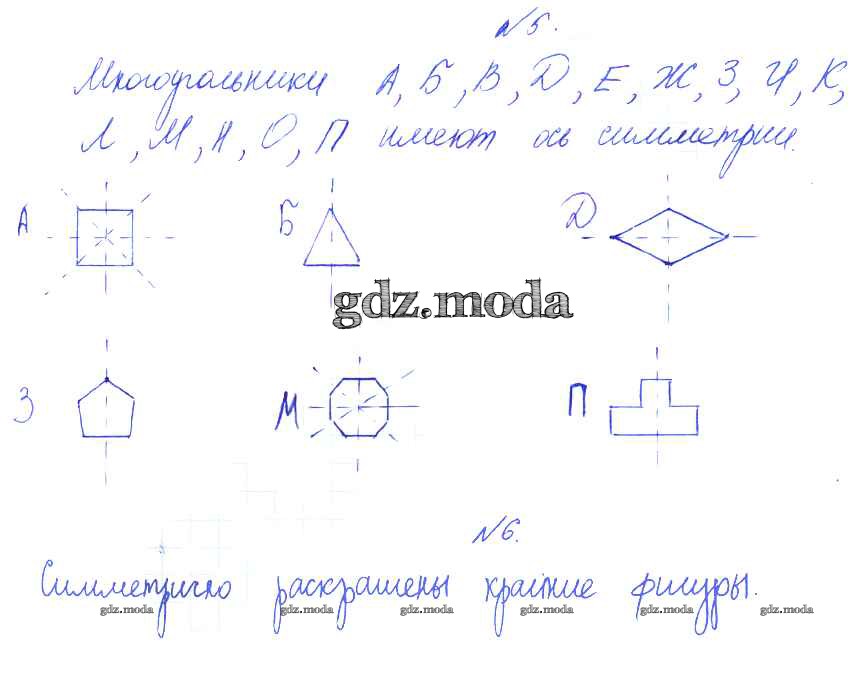 №5.
Многоугольники А, Б, В, Д, Е, Ж, З, И, К,
Л, М, Н, О, П имеют ось симметрии.
А Б Д
gdz.moda
З М П
№6.
Симметрично раскрашены крайние фигуры.
gdz.moda gdz.moda gdz.moda gdz.moda gdz.moda